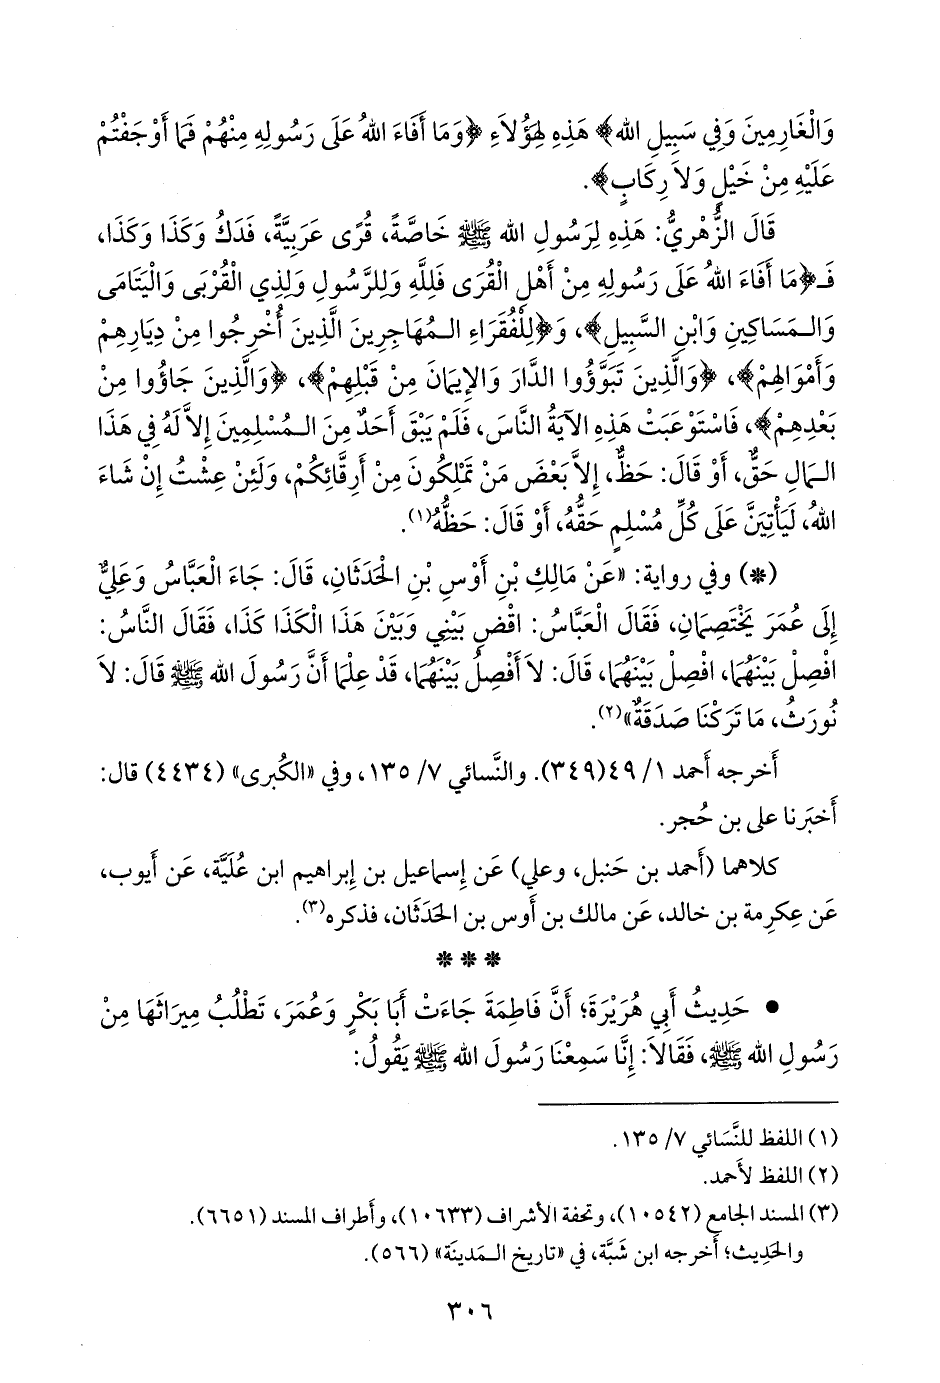 وَالْغَارِمِينَ وَفِي سَبِيلِ الله﴾ هَذِهِ لِهَؤُلَاءِ ﴿وَمَا أَفَاءَ اللهُ عَلَى رَسُولِهِ مِنْهُمْ فَمَا أَوْجَفْتُمْ
عَلَيْهِ مِنْ خَيْلٍ وَلاَ رِكَابٍ﴾.
قَالَ الزُّهْرِيُّ: هَذِهِ لِرَسُولِ الله ﷺ خَاصَّةً، قُرًى عَرَبِيَّةً، فَدَكُ وَكَذَا وَكَذَا،
فَـ﴿مَا أَفَاءَ اللهُ عَلَى رَسُولِهِ مِنْ أَهْلِ الْقُرَى فَلِلَّهِ وَلِلرَّسُولِ وَلِذِي الْقُرْبَى وَالْيَتَامَى
وَالـمَسَاكِينِ وَابْنِ السَّبِيلِ﴾، وَ﴿لِلْفُقَرَاءِ الـمُهَاجِرِينَ الَّذِينَ أُخْرِجُوا مِنْ دِيَارِهِمْ
وَأَمْوَالِهِمْ﴾، ﴿وَالَّذِينَ تَبَوَّؤُوا الدَّارَ وَالإِيمَانَ مِنْ قَبْلِهِمْ﴾، ﴿وَالَّذِينَ جَاؤُوا مِنْ
بَعْدِهِمْ﴾، فَاسْتَوْعَبَتْ هَذِهِ الآيَةُ النَّاسَ، فَلَمْ يَبْقَ أَحَدٌ مِنَ الـمُسْلِمِينَ إِلاَّ لَهُ فِي هَذَا
الـمَالِ حَقٌّ، أَوْ قَالَ: حَظٌّ، إِلاَّ بَعْضَ مَنْ تَمْلِكُونَ مِنْ أَرِقَّائِكُمْ، وَلَئِنْ عِشْتُ إِنْ شَاءَ
اللهُ، لَيَأْتِيَنَّ عَلَى كُلِّ مُسْلِمٍ حَقُّهُ، أَوْ قَالَ: حَظُّهُ(١).
(*) وفي رواية: «عَنْ مَالِكِ بْنِ أَوْسِ بْنِ الْحَدَثَانِ، قَالَ: جَاءَ الْعَبَّاسُ وَعَلِيٌّ
إِلَى عُمَرَ يَخْتَصِمَانِ، فَقَالَ الْعَبَّاسُ: اقْضِ بَيْنِي وَبَيْنَ هَذَا الْكَذَا كَذَا، فَقَالَ النَّاسُ:
افْصِلْ بَيْنَهُمَا، افْصِلْ بَيْنَهُمَا، قَالَ: لاَ أَفْصِلُ بَيْنَهُمَا، قَدْ عَلِمَا أَنَّ رَسُولَ الله ﷺ قَالَ: لاَ
نُورَثُ، مَا تَرَكْنَا صَدَقَةٌ»(٢).
أَخرجه أَحمد ١/ ٤٩(٣٤٩). والنَّسائي ٧/ ١٣٥، وفي «الكُبرى» (٤٤٣٤) قال:
أَخبَرنا علي بن حُجر.
كلاهما (أَحمد بن حَنبل، وعلي) عَن إِسماعيل بن إِبراهيم ابن عُلَيَّة، عَن أَيوب،
عَن عِكرِمة بن خالد، عَن مالك بن أَوس بن الحَدَثَان، فذكره(٣).
* * *
• حَدِيثُ أَبِي هُرَيْرَةَ؛ أَنَّ فَاطِمَةَ جَاءَتْ أَبَا بَكْرٍ وَعُمَرَ، تَطْلُبُ مِيرَاثَهَا مِنْ
رَسُولِ الله ﷺ، فَقَالاَ: إِنَّا سَمِعْنَا رَسُولَ الله ﷺ يَقُولُ:
(١) اللفظ للنَّسَائي ٧/ ١٣٥.
(٢) اللفظ لأَحمد.
(٣) المسند الجامع (١٠٥٤٢)، وتحفة الأشراف (١٠٦٣٣)، وأَطراف المسند (٦٦٥١).
والحَدِيث؛ أَخرجه ابن شَبَّة، في «تاريخ الـمَدينَة» (٥٦٦).
٣٠٦